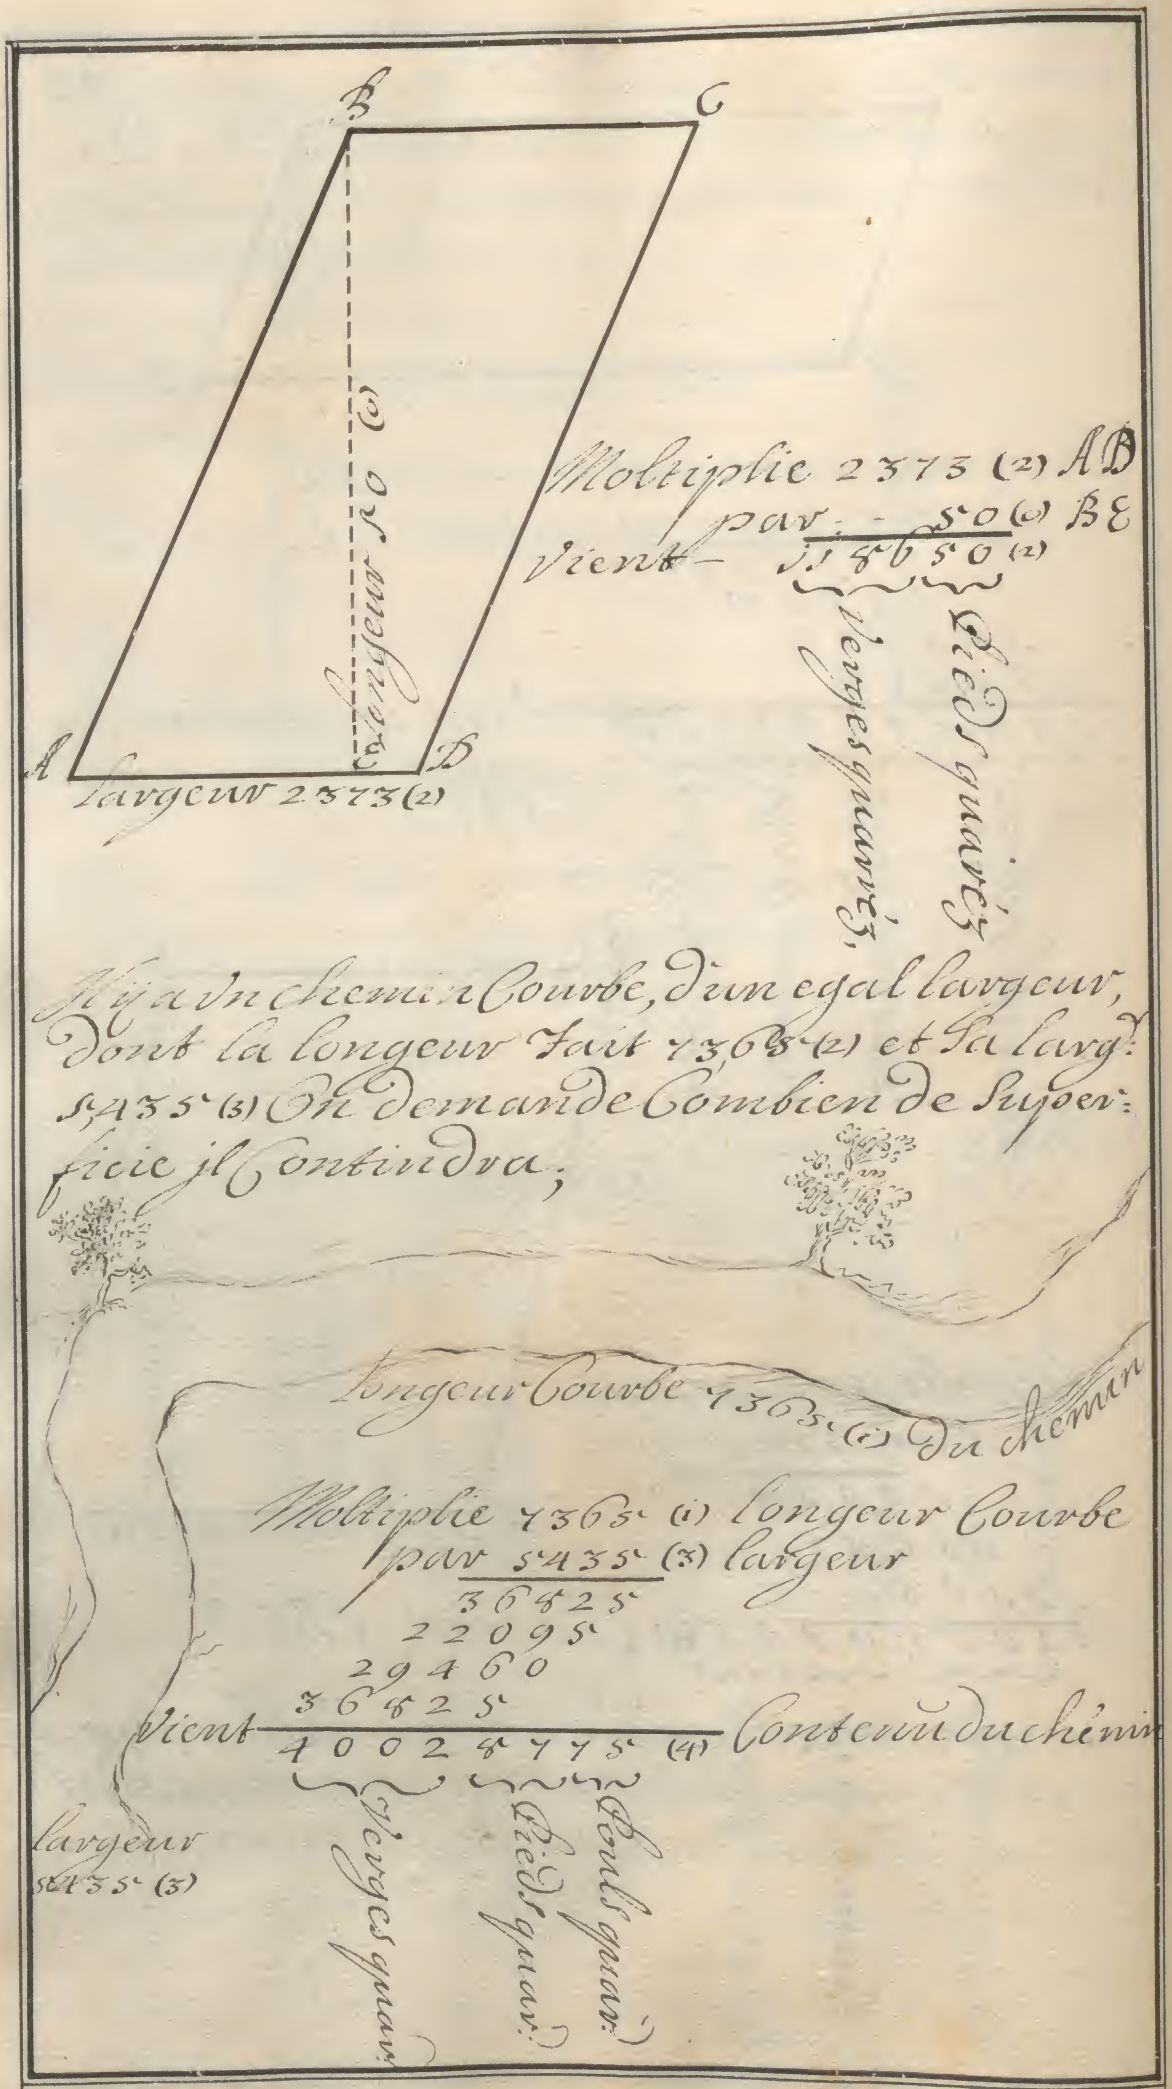 B
C
longeur 50 (0)
Moltiplie 2373 (2) AD
par - 50 (0) BE
Vient - 118650 (2)
Verges quarréz,
Pieds quaréz
A
E
D
largeur 2373 (2)
Il y a Vn chemin Courbe, d'un egal largeur,
dont la longeur Fait 7365 (2) et Sa larg:
5,435 (3) On demande Combien de Super:
ficie jl Contindra;
longeur Courbe 7365 (1) du chemin
Moltiplie 7365 (1) longeur Courbe
par 5435 (3) largeur
36825
22095
29460
36825
Vient 40028775 (4) Contenu du chémin
Verges quar:
Pieds quar:
Pouls quar:
largeur
5435 (3)